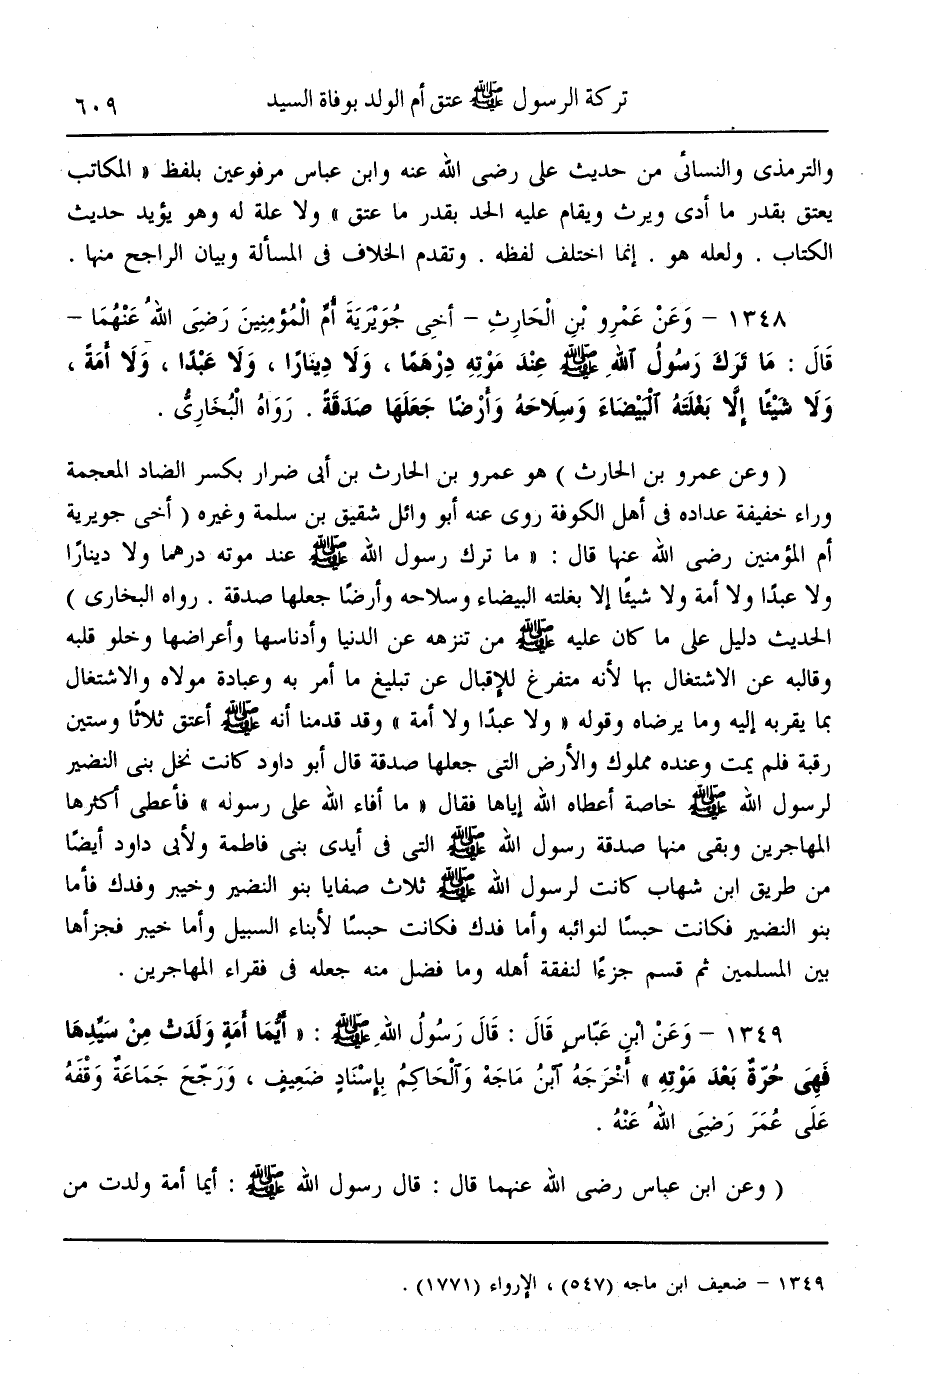 تركة الرسول ﷺ عتق أم الولد بوفاة السيد ٦٠٩
والترمذى والنسائى من حديث على رضى الله عنه وابن عباس مرفوعين بلفظ « المكاتب
يعتق بقدر ما أدى ويرث ويقام عليه الحد بقدر ما عتق » ولا علة له وهو يؤيد حديث
الكتاب . ولعله هو . إنما اختلف لفظه . وتقدم الخلاف فى المسألة وبيان الراجح منها .
١٣٤٨ – وَعَنْ عَمْرِو بْنِ الْحَارِثِ – أخِى جُوَيْرِيَةَ أُمِّ الْمُؤْمِنِينَ رَضِىَ اللهُ عَنْهُمَا –
قَالَ : مَا تَرَكَ رَسُولُ اللهِ ﷺ عِنْدَ مَوْتِهِ دِرْهَمًا ، وَلَا دِينَارًا ، وَلَا عَبْدًا ، وَلَا أَمَةً ،
وَلَا شَيْئًا إلَّا بَغْلَتَهُ الْبَيْضَاءَ وَسِلَاحَهُ وَأَرْضًا جَعَلَهَا صَدَقَةً . رَوَاهُ الْبُخَارِىُّ .
( وعن عمرو بن الحارث ) هو عمرو بن الحارث بن أبى ضرار بكسر الضاد المعجمة
وراء خفيفة عداده فى أهل الكوفة روى عنه أبو وائل شقيق بن سلمة وغيره ( أخى جويرية
أم المؤمنين رضى الله عنها قال : « ما ترك رسول الله ﷺ عند موته درهما ولا دينارًا
ولا عبدًا ولا أمة ولا شيئًا إلا بغلته البيضاء وسلاحه وأرضًا جعلها صدقة . رواه البخارى )
الحديث دليل على ما كان عليه ﷺ من تنزهه عن الدنيا وأدناسها وأعراضها وخلو قلبه
وقالبه عن الاشتغال بها لأنه متفرغ للإقبال عن تبليغ ما أمر به وعبادة مولاه والاشتغال
بما يقربه إليه وما يرضاه وقوله « ولا عبدًا ولا أمة » وقد قدمنا أنه ﷺ أعتق ثلاثًا وستين
رقبة فلم يمت وعنده مملوك والأرض التى جعلها صدقة قال أبو داود كانت نخل بنى النضير
لرسول الله ﷺ خاصة أعطاه الله إياها فقال « ما أفاء الله على رسوله » فأعطى أكثرها
المهاجرين وبقى منها صدقة رسول الله ﷺ التى فى أيدى بنى فاطمة ولأبى داود أيضًا
من طريق ابن شهاب كانت لرسول الله ﷺ ثلاث صفايا بنو النضير وخيبر وفدك فأما
بنو النضير فكانت حبسًا لنوائبه وأما فدك فكانت حبسًا لأبناء السبيل وأما خيبر فجزأها
بين المسلمين ثم قسم جزءًا لنفقة أهله وما فضل منه جعله فى فقراء المهاجرين .
١٣٤٩ – وَعَنْ ابْنِ عَبّاسٍ قَالَ : قَالَ رَسُولُ اللهِ ﷺ : « أَيُّمَا أَمَةٍ وَلَدَتْ مِنْ سَيِّدِهَا
فَهِىَ حُرّةٌ بَعْدَ مَوْتِهِ » أَخْرَجَهُ ابْنُ مَاجَهْ وَالْحَاكِمُ بِإسْنَادٍ ضَعِيفٍ ، وَرَجّحَ جَمَاعَةٌ وَقْفَهُ
عَلَى عُمَرَ رَضِىَ اللهُ عَنْهُ .
( وعن ابن عباس رضى الله عنهما قال : قال رسول الله ﷺ : أيما أمة ولدت من
١٣٤٩ – ضعيف ابن ماجه (٥٤٧) ، الإرواء (١٧٧١) .